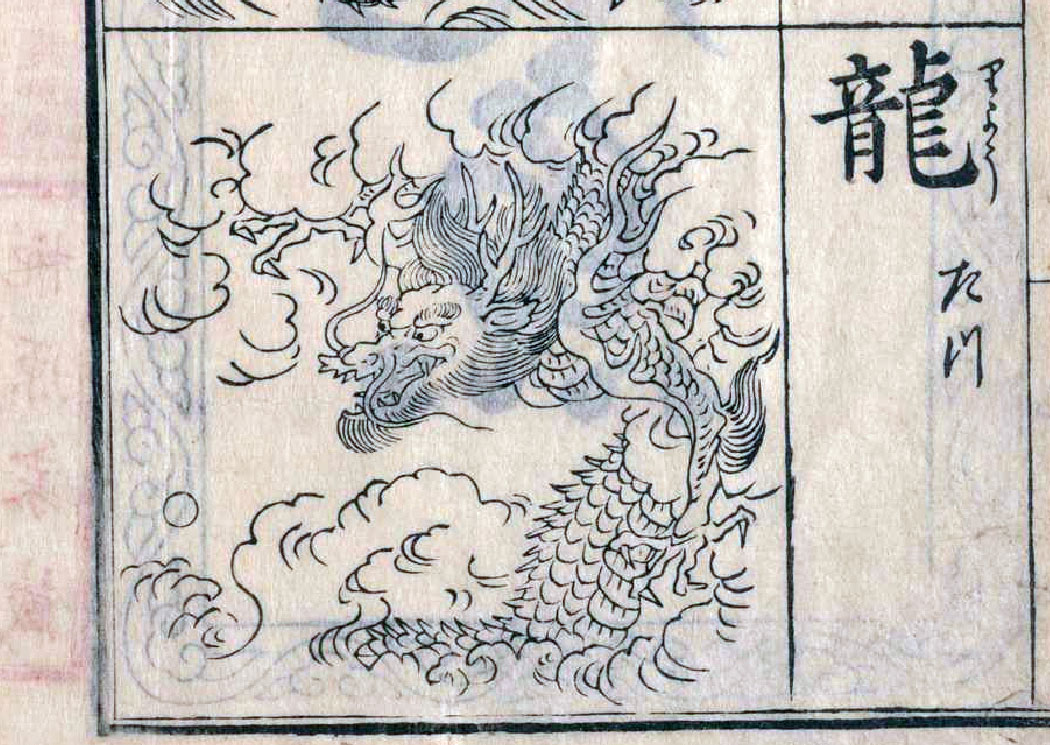 龍
りよう
たつ